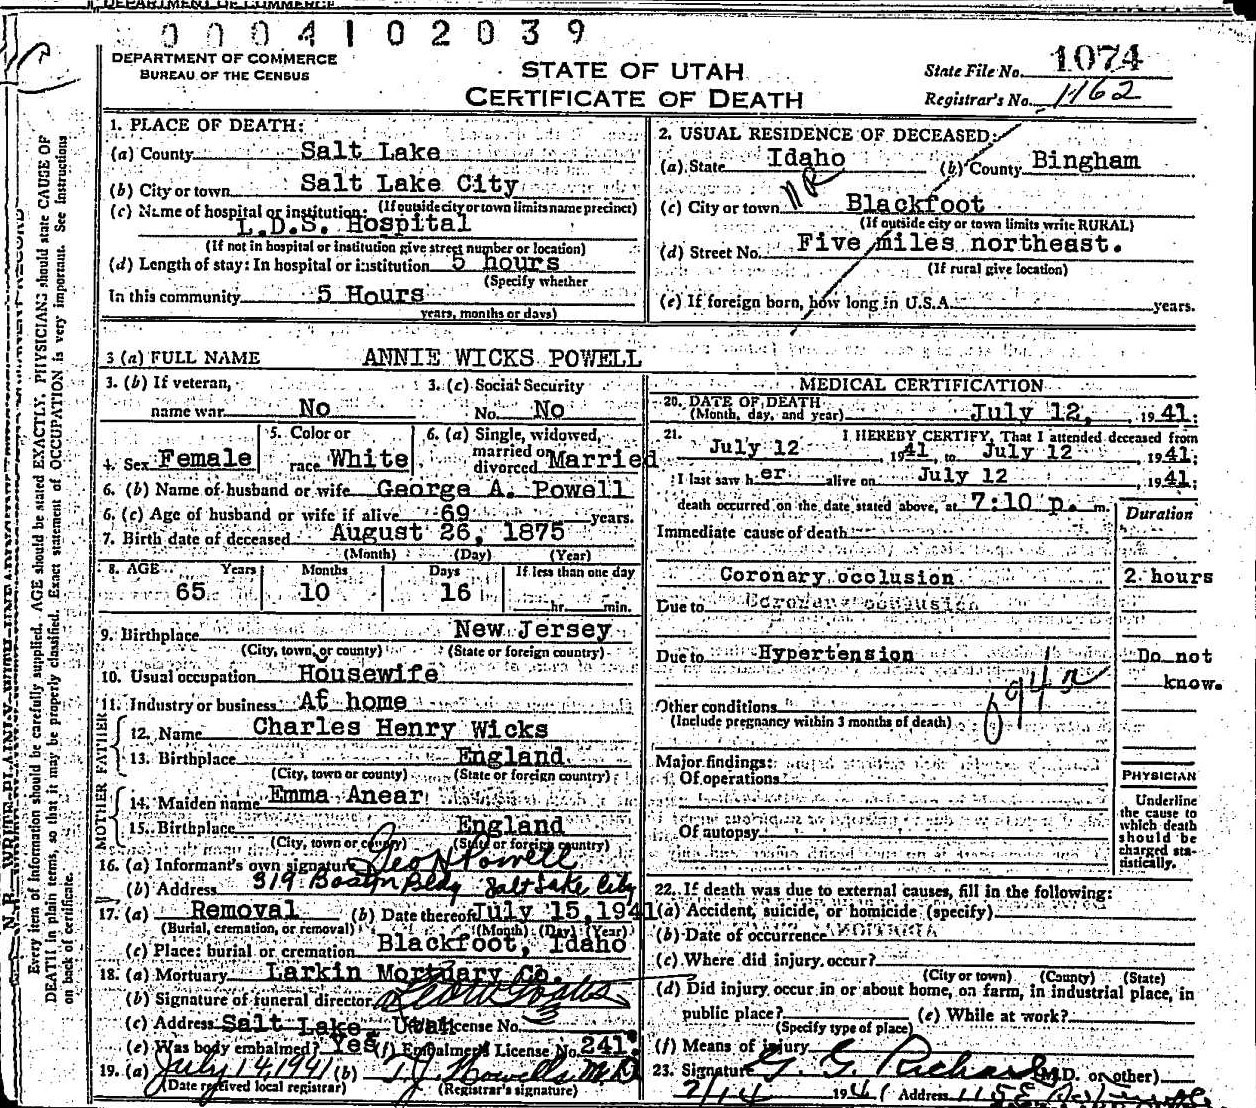 DEPARTMENT OF COMMERCE
0004102039
DEPARTMENT OF COMMERCE
BUREAU OF THE CENSUS
STATE OF UTAH
CERTIFICATE OF DEATH
State File No. 1074
Registrar's No. 1162
N. B.—WRITE PLAINLY WITH
Every item of information should be carefully supplied. AGE should be stated EXACTLY. PHYSICIANS should state CAUSE OF
DEATH in plain terms, so that it may be properly classified. Exact statement of OCCUPATION is very important. See Instructions
on back of certificate.
1. PLACE OF DEATH:
(a) County Salt Lake
(b) City or town Salt Lake City
(If outside city or town limits name precinct)
(c) Name of hospital or institution:
L.D.S. Hospital
(If not in hospital or institution give street number or location)
(d) Length of stay: In hospital or institution 5 hours
(Specify whether
In this community 5 Hours
years, months or days)
2. USUAL RESIDENCE OF DECEASED:
(a) State Idaho (b) County Bingham
NR
(c) City or town Blackfoot
(If outside city or town limits write RURAL)
(d) Street No. Five miles northeast.
(If rural give location)
(e) If foreign born, how long in U.S.A. years.
3 (a) FULL NAME ANNIE WICKS POWELL
3. (b) If veteran, name war No
3. (c) Social Security No. No
4. Sex Female
5. Color or race White
6. (a) Single, widowed, married or divorced Married
6. (b) Name of husband or wife George A. Powell
6. (c) Age of husband or wife if alive 69 years.
7. Birth date of deceased August 26, 1875
(Month) (Day) (Year)
8. AGE Years Months Days If less than one day
65 10 16 hr. min.
9. Birthplace New Jersey
(City, town, or county) (State or foreign country)
10. Usual occupation Housewife
11. Industry or business At home
FATHER
12. Name Charles Henry Wicks
13. Birthplace England
(City, town or county) (State or foreign country)
MOTHER
14. Maiden name Emma Anear
15. Birthplace England
(City, town or county) (State or foreign country)
16. (a) Informant's own signature Geo A Powell
(b) Address 319 Boston Bldg Salt Lake City
17. (a) Removal (b) Date thereof July 15, 1941
(Burial, cremation, or removal) (Month) (Day) (Year)
(c) Place: burial or cremation Blackfoot, Idaho
18. (a) Mortuary Larkin Mortuary Co.
(b) Signature of funeral director
(c) Address Salt Lake, Utah License No.
(e) Was body embalmed? Yes (f) Embalmer's License No. 241.
19. (a) July 14, 1941 (b) T. J. Howells M.D.
(Date received local registrar) (Registrar's signature)
MEDICAL CERTIFICATION
20. DATE OF DEATH
(Month, day, and year) July 12, 1941:
21. I HEREBY CERTIFY, That I attended deceased from
July 12 1941, to July 12 1941:
I last saw her alive on July 12 1941:
death occurred on the date stated above, at 7:10 p. m.
Duration
Immediate cause of death
Coronary occlusion 2 hours
Due to Coronary occlusion
Due to Hypertension Do not
know.
Other conditions
(Include pregnancy within 3 months of death)
Major findings:
Of operations
Of autopsy
PHYSICIAN
Underline
the cause to
which death
should be
charged sta-
tistically.
22. If death was due to external causes, fill in the following:
(a) Accident, suicide, or homicide (specify)
(b) Date of occurrence
(c) Where did injury occur?
(City or town) (County) (State)
(d) Did injury occur in or about home, on farm, in industrial place, in
public place? (e) While at work?
(Specify type of place)
(f) Means of injury
23. Signature G. G. Richards (M.D. or other)
7/14 1941 Address 115 E